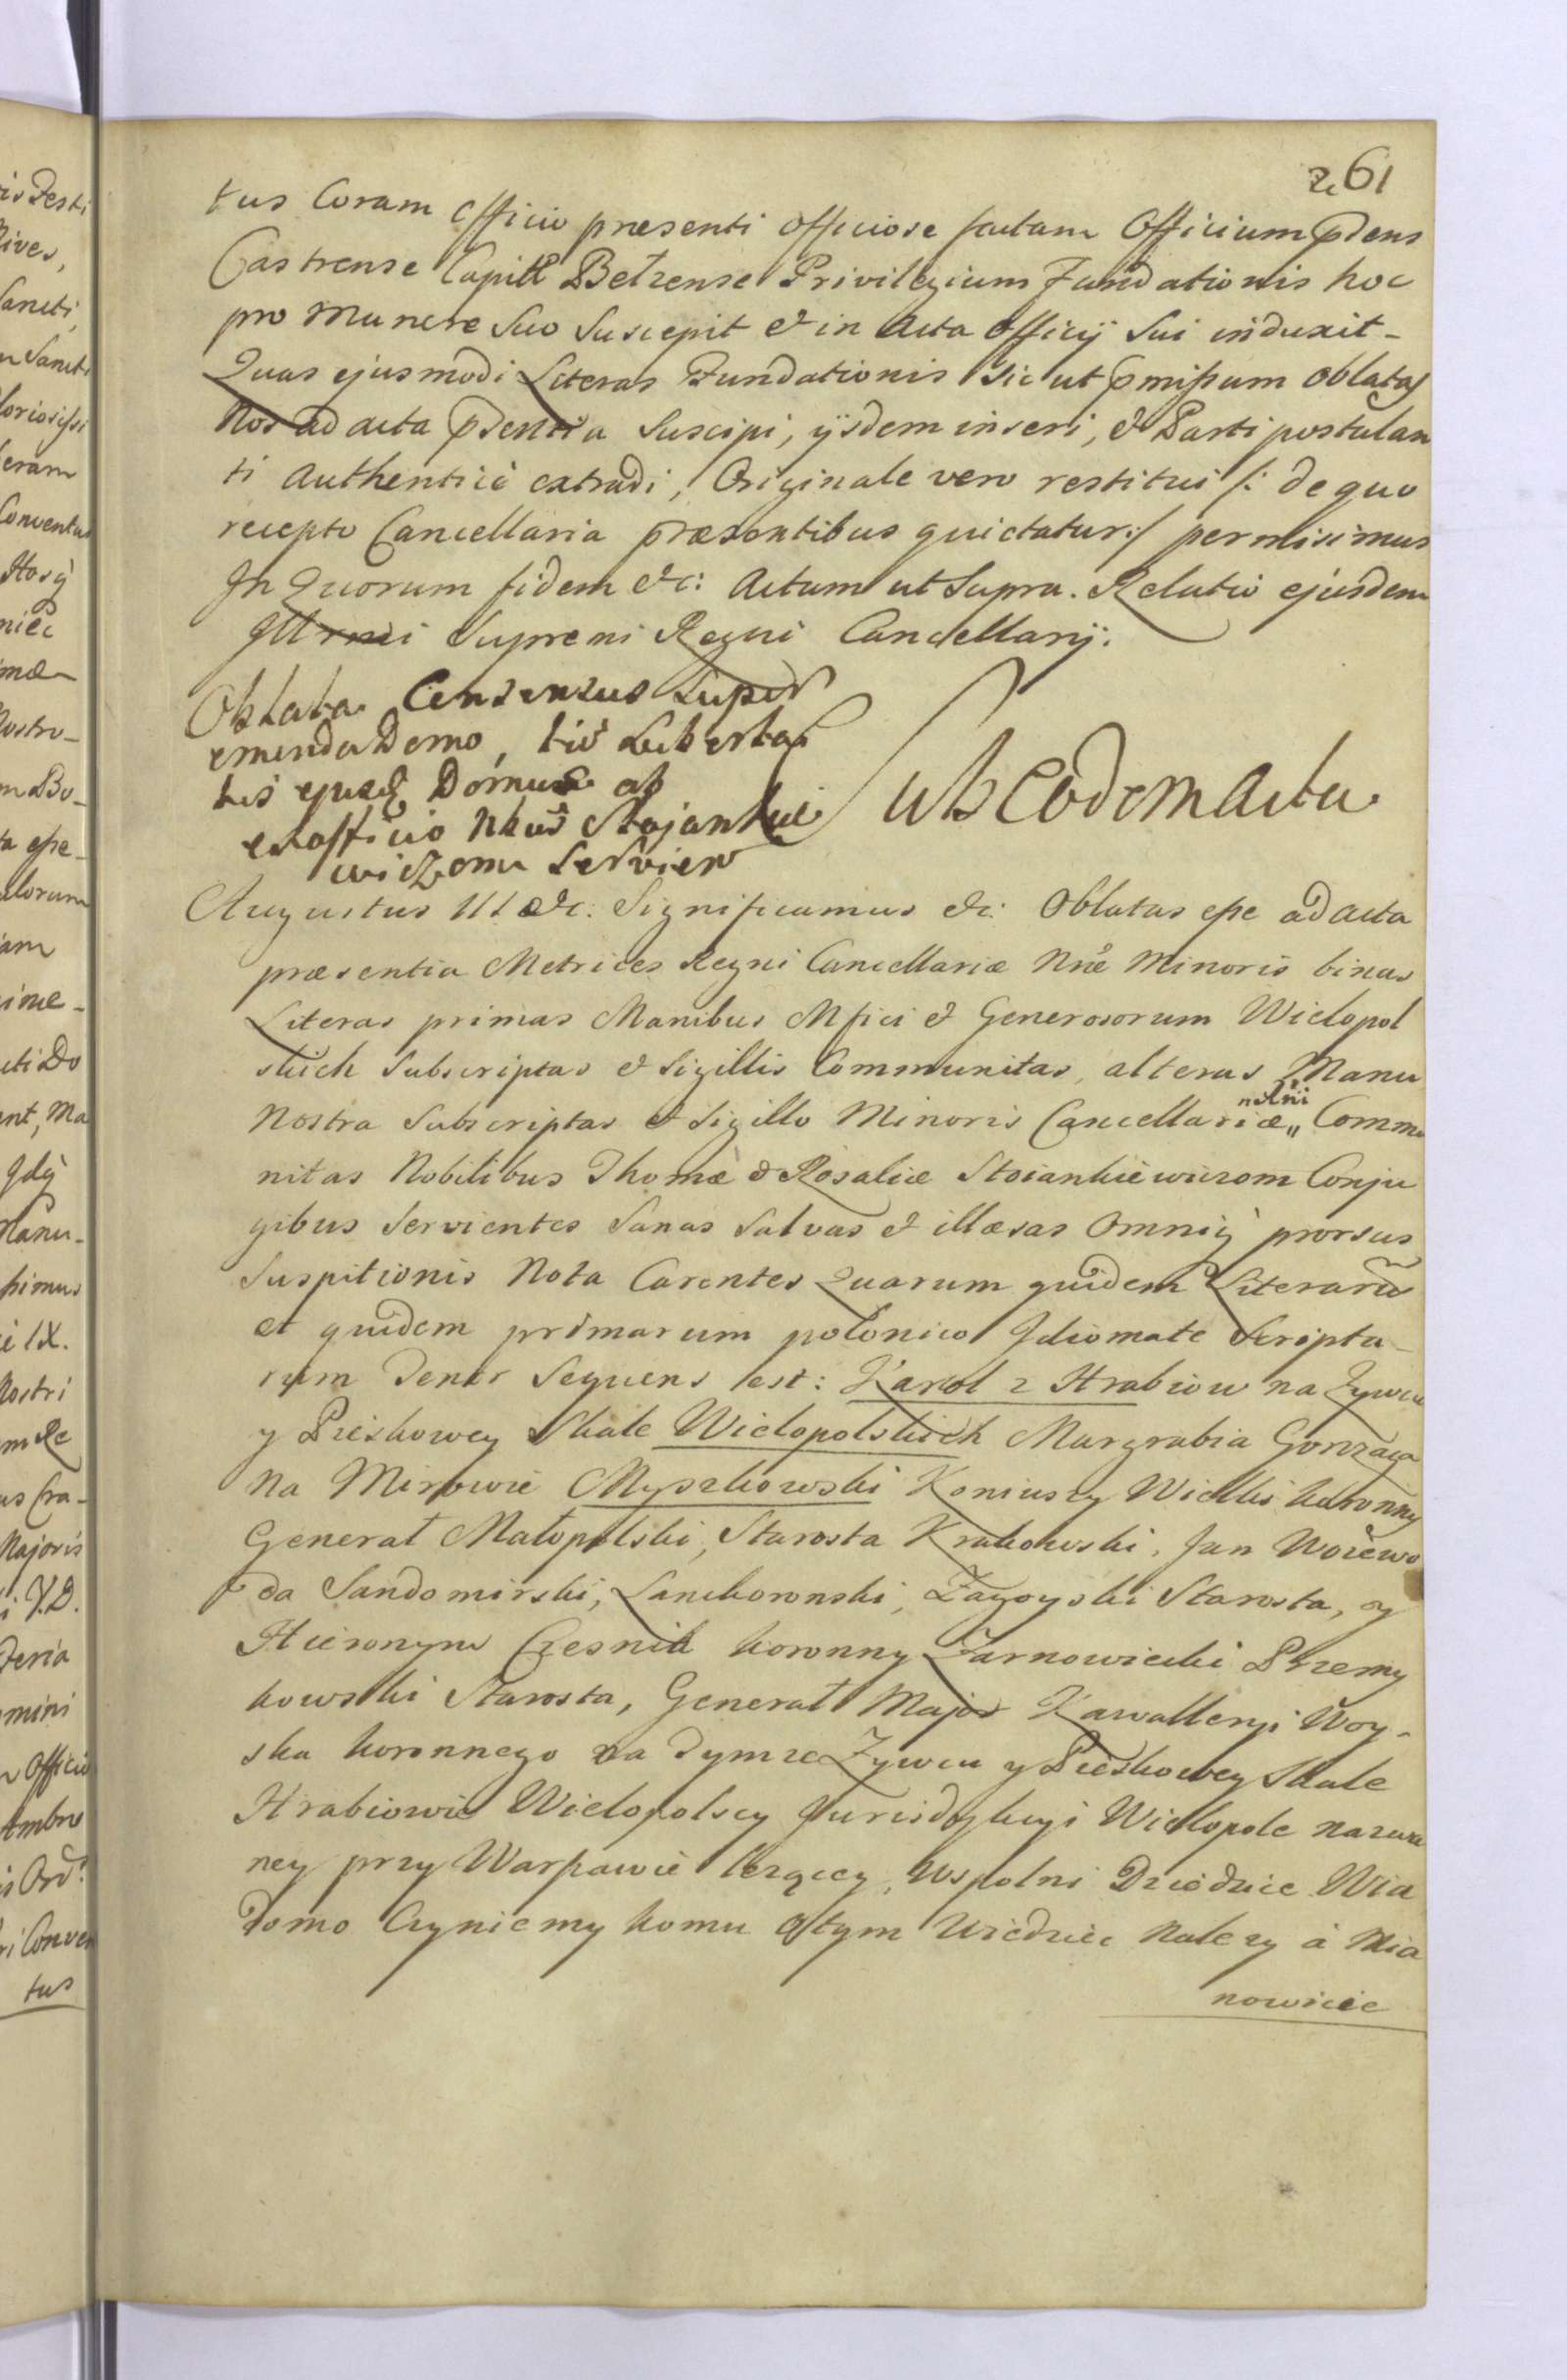 261
tus Coram Officio præsenti officiose factam Officium pdens
Castrense Capitle Bełzense Privilegium Fundationis hoc
pro Munere Suo Suscepit & in Acta Officij Sui induxit_
Quas ejusmodi Literas Fundationis Sicut pmissum Oblatas
Nos ad acta pdentia Suscipi, ijsdem inseri, & Parti postulan
ti Authenticè extradi, Originale vero restitui /: de quo
recepto Cancellaria præsentibus quietatur:/ permisimus
In Quorum fidem &c: Actum ut Supra. Relatio ejusdem
Illrmi Supremi Regni Cancellarij.
Oblata Consensus Super
emenda Domo, tū Liberta
tis ejusq Domus ab
exofficio Nbūs Stojankie
wiczom Servien
Sub Eodem Actu
Augustus III &c: Significamus &c: Oblatas esse ad Acta
præsentia Metrices Regni Cancellariæ Nræ Minoris binas
Literas primas Manibus Mfici & Generosorum Wielopol
skich Subscriptas & Sigillis Communitas, alteras Manu
Nostra Subscriptas & Sigillo Minoris Cancellariæ,, Commu
nitas Nobilibus Thomæ & Rosaliæ Stoiankiewiczom Conju
gibus Servientes Sanas Salvas & illæsas Omniq prorsus
Suspitionis Nota Carentes Quarum quidem Literarū
et quidem primarum polonico Idiomate Scripta_
rum Tenor Sequens est: Karol z Hrabiow na Zywcu
y Pieskowey Skale Wielopolskich Margrabia Gonzaga
Na Mirowie Myszkowski Koniuszy Wielki koronny
Generał Małopolski, Starosta Krakowski, Jan Woiewo
da Sandomirski, Lanckoronski, Zagoyski Starosta, y
Hieronym Czesnik koronny Zarnowiecki Przemy
kowski Starosta, Generał Major Kawalleryi Woy_
ska koronnego na tymze Zywcu y Pieskowey Skale
Hrabiowie Wielopolscy Jurisdykcyi Wielopole nazwa
ney przy Warszawie lezącey, Wspolni Dziedzice Wia
domo Czyniemy komu Otym Wiedziec Nalezy à Mia
nowicie